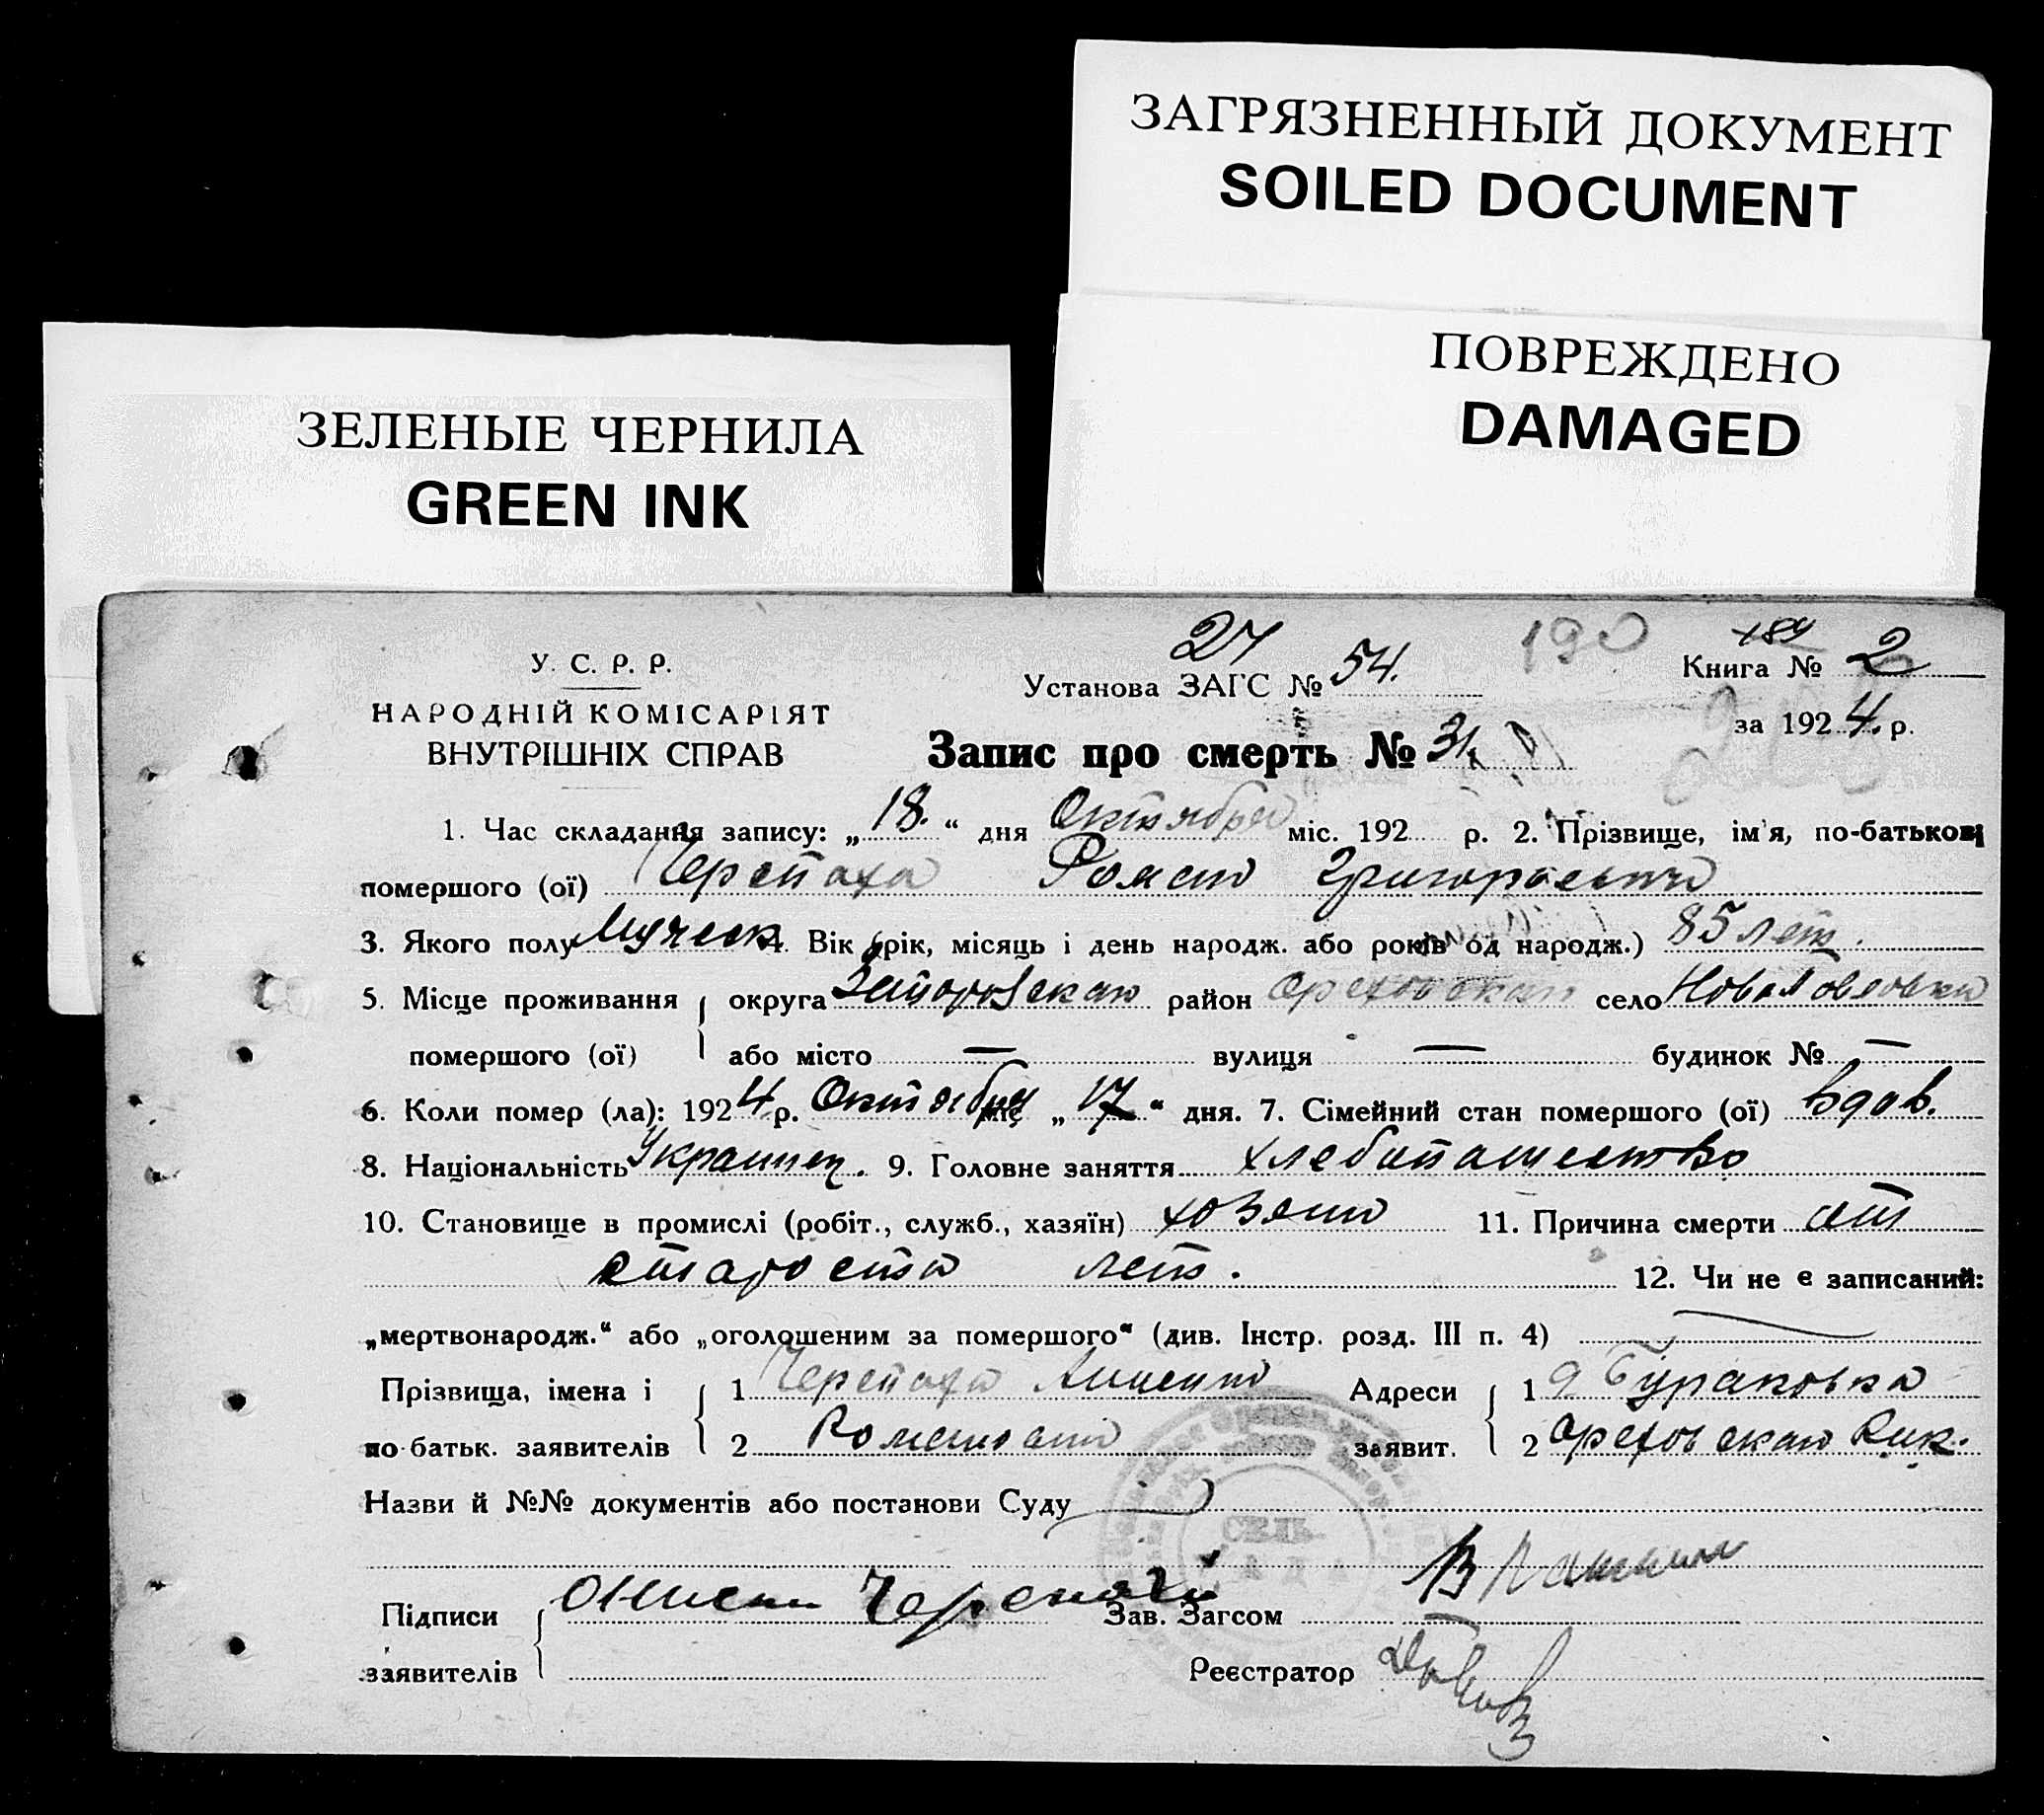 ЗАГРЯЗНЕННЫЙ ДОКУМЕНТ
SOILED DOCUMENT
ПОВРЕЖДЕНО
DAMAGED
ЗЕЛЕНЫЕ ЧЕРНИЛА
GREEN INK
27 190 189
У. С. Р. Р. Установа ЗАГС № 54. Книга № 2
НАРОДНІЙ КОМІСАРІЯТ за 1924. р.
ВНУТРІШНІХ СПРАВ Запис про смерть № 31
1. Час складання запису: „18.“ дня Октября міс. 192 р. 2. Прізвище, ім'я, по-батькові
помершого (ої) Черепаха Роман Григорьевич
3. Якого полу Мужеск 4. Вік (рік, місяць і день народж. або років од народж.) 85 лет.
5. Місце проживання округа Запорожская район Ореховская село Новояковлевка
помершого (ої) або місто — вулиця — будинок № —
6. Коли помер (ла): 1924 р. Октября міс „17“ дня. 7. Сімейний стан помершого (ої) вдов.
8. Національність Украинец. 9. Головне заняття хлебопашество
10. Становище в промислі (робіт., служб., хазяїн) хозяин 11. Причина смерти от
старости лет. 12. Чи не є записаний:
„мертвонародж.“ або „оголошеним за помершого“ (див. Інстр. розд. III п. 4) —
Прізвища, імена і 1 Черепаха Адреси 1 Бураковка
по-батьк. заявителів 2 Романович заявит. 2 Ореховская
Назви й №№ документів або постанови Суду —
СЕЛЬ
РАДА
Підписи Черепаха Зав. Загсом
заявителів Реєстратор